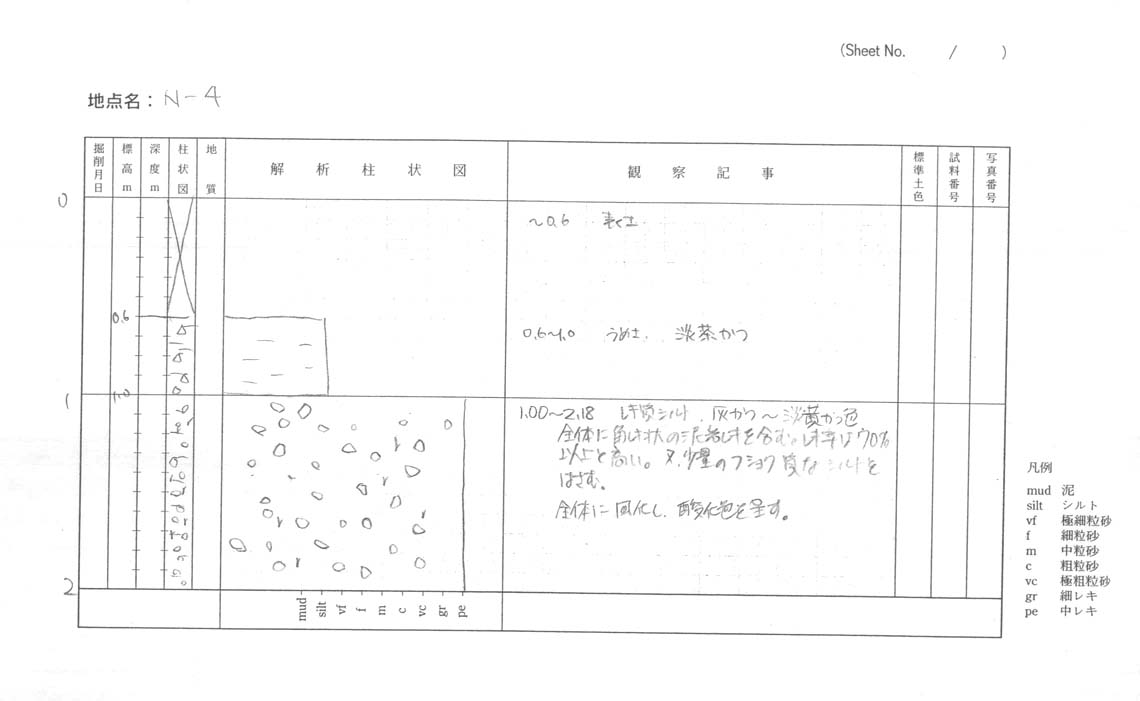 (Sheet No. / )
地点名： N-4
掘削月日 標高m 深度m 柱状図 地質 解析柱状図 観察記事 標準土色 試料番号 写真番号
0
~0.6 表土
0.6
0.6~1.0 うめ土. 淡茶かつ
1 1.0
1.00~2.18 レキ質シルト. 灰かつ~淡黄かっ色
全体に角レキ状の泥岩レキを含む。レキ率は70%
以上と高い。又、少量のフショク質なシルトを
はさむ。
全体に風化し、酸化色を呈す。
2
mud silt vf f m c vc gr pe
凡例
mud 泥
silt シルト
vf 極細粒砂
f 細粒砂
m 中粒砂
c 粗粒砂
vc 極粗粒砂
gr 細レキ
pe 中レキ